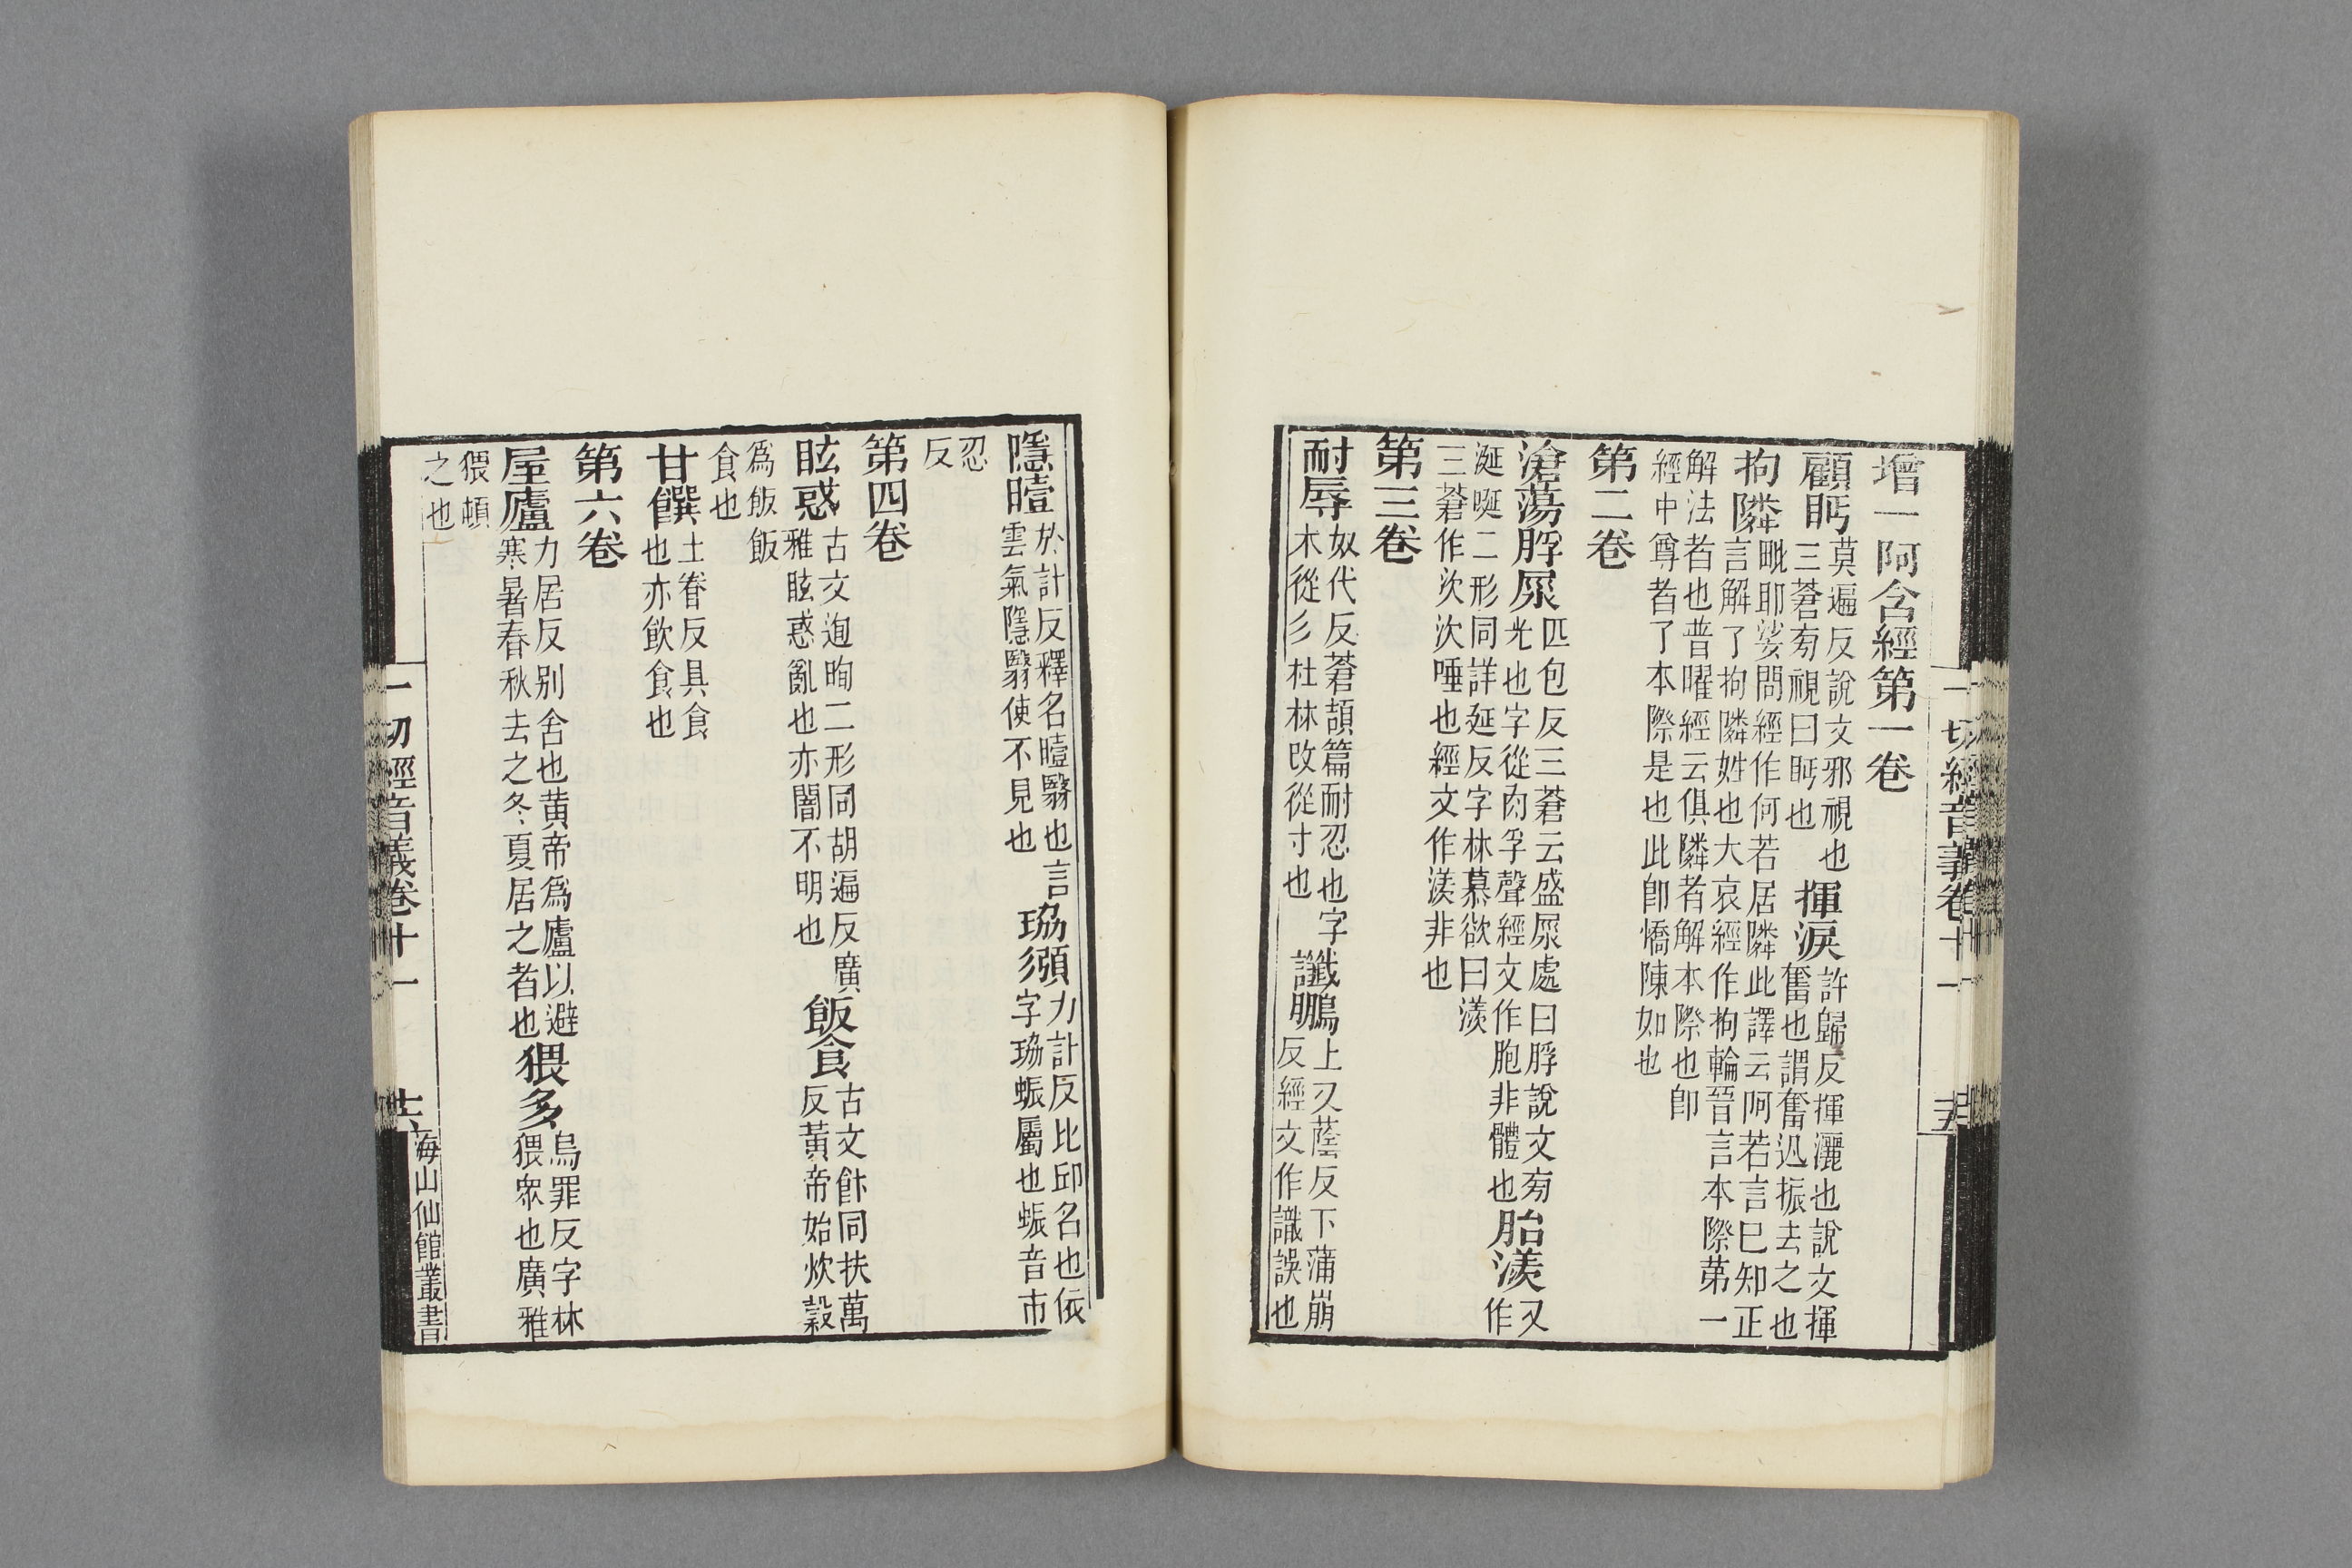 增一阿含經第一卷
顧眄莫遍反說文邪視也三蒼旁視曰眄也揮淚許歸反揮灑也說文揮奮也謂奮迅振去之也
拘隣毗耶娑問經作何若居隣此譯云阿若言已知正言解了拘隣姓也大哀經作拘輪晉言本際第一
解法者也普曜經云俱隣者解本際也卽經中尊者了本際是也此卽憍陳如也
第二卷
滄蕩脬尿匹包反三蒼云盛尿處曰脬說文旁光也字從肉孚聲經文作胞非體也胎㵪又作
涎唌二形同詳延反字林慕欲曰㵪三蒼作次次唾也經文作㵪非也
第三卷
耐辱奴代反蒼頡篇耐忍也字木從彡杜林改從寸也讖鵬上叉蔭反下蒲崩反經文作識誤也
一切經音義卷十一
十五
隱曀於計反釋名曀翳也言雲氣隱翳使不見也珕㺡力計反比邱名也依字珕蜧屬也蜧音市
忍反
第四卷
眩惑古文迿眴二形同胡遍反廣雅眩惑亂也亦闇不明也飯食古文飰同扶萬反黃帝始炊穀
爲飯飯食也
甘饌士眷反具食也亦飲食也
第六卷
屋廬力居反別舍也黃帝爲廬以避寒暑春秋去之冬夏居之者也猥多烏罪反字林猥衆也廣雅
猥頓之也
一切經音義卷十一
十六
海山仙館叢書